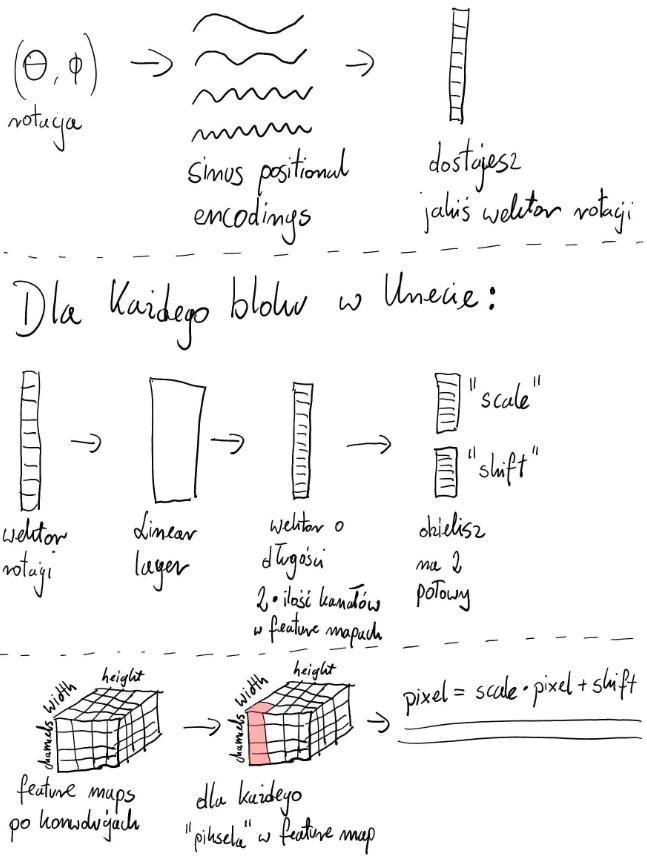 (θ, ϕ)
rotacja
sinus positional
encodings
dostajesz
jakiś wektor rotacji
Dla każdego bloku w Unecie:
wektor
rotacji
Linear
layer
wektor o
długości
2 • ilość kanałów
w feature mapach
"scale"
"shift"
dzielisz
na 2
połowy
channels
width
height
feature maps
po konwolucjach
channels
width
height
dla każdego
"piksela" w feature map
pixel = scale • pixel + shift